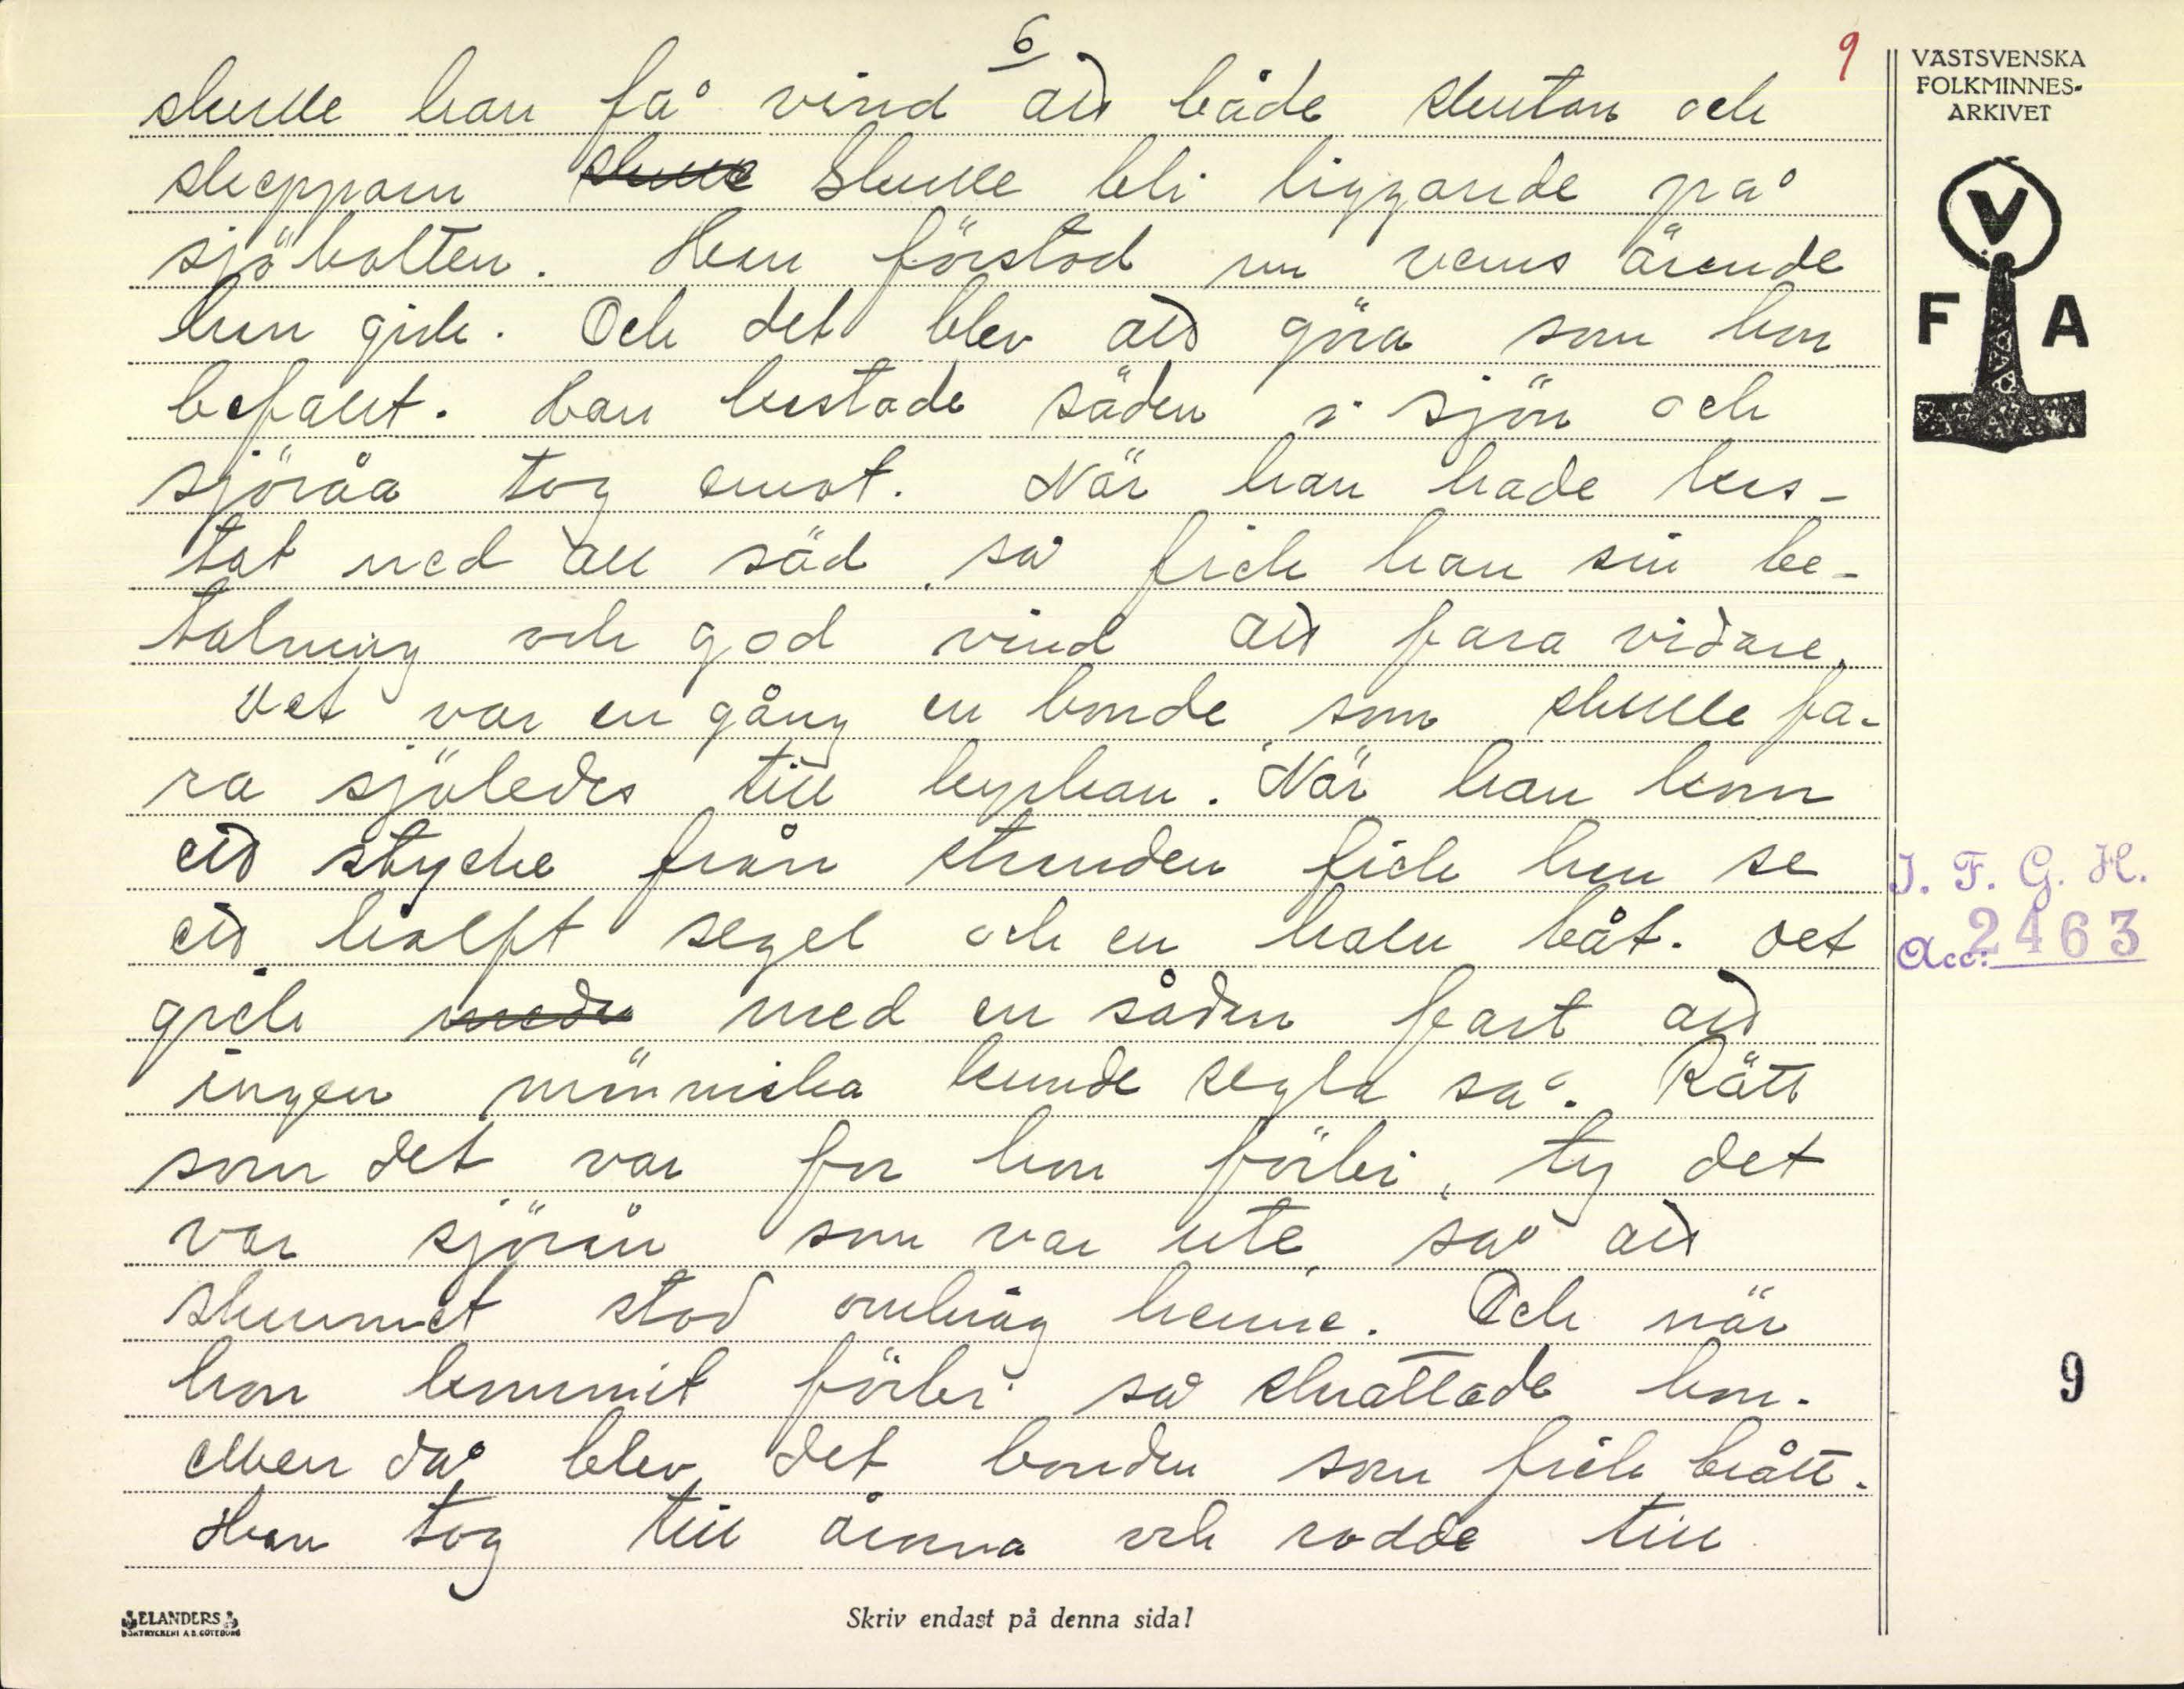 6
9
skulle han få vind att både skutan och
skepparn skulle Skulle bli liggande på
sjöbotten. Han förstod nu vems ärende
hon gick. Och det blev att göra som hon
befallt. Han kastade säden i sjön och
sjöråa tog emot. När han hade kas-
tat ned all säd, så fick han sin be-
talning och god vind att fara vidare.
Det var en gång en bonde som skulle fa-
ra sjöledes till kyrkan. När han kom
ett stycke från stranden fick han se
ett halft segel och en halv båt. Det
gick med en sådan fart att
ingen människa kunde segla så. Rätt
som det var for hon förbi, ty det
var sjörån som var ute, så att
skummet stod omkring henne. Och när
hon kommit förbi så skrattade hon.
Men då blev det bonden som fick brått.
Han tog till årorna och rodde till
VÄSTSVENSKA
FOLKMINNES-
ARKIVET
V
F A
I. F. G. H.
Acc: 2463
9
ELANDERS
BOKTRYCKERI A.B. GÖTEBORG
Skriv endast på denna sida!